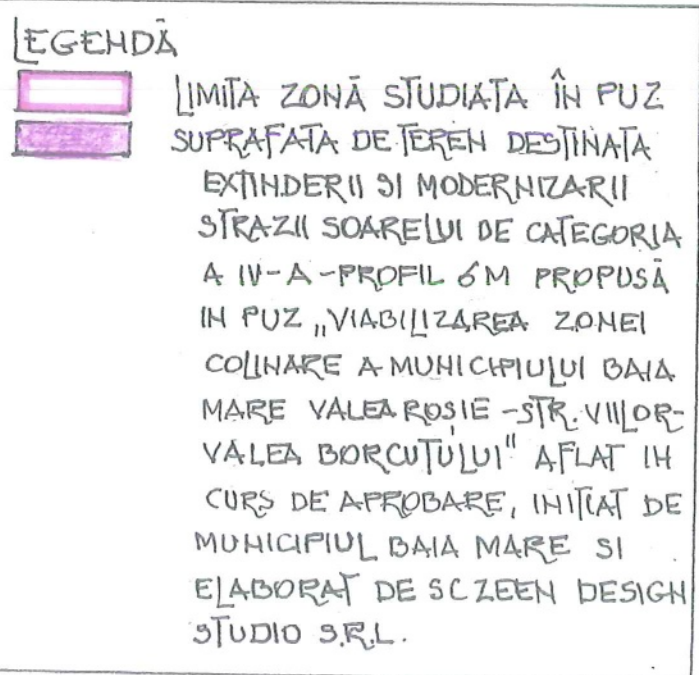 LEGENDĂ
LIMITA ZONĂ STUDIATA ÎN PUZ
SUPRAFATA DE TEREN DESTINATA
EXTINDERII SI MODERNIZARII
STRAZII SOARELUI DE CATEGORIA
A IV-A-PROFIL 6M PROPUSĂ
IN PUZ „VIABILIZAREA ZONEI
COLINARE A MUNICIPIULUI BAIA
MARE VALEA ROȘIE -STR. VIILOR-
VALEA BORCUTULUI" AFLAT IN
CURS DE APROBARE, INITIAT DE
MUNICIPIUL BAIA MARE SI
ELABORAT DE SC ZEEN DESIGN
STUDIO S.R.L.